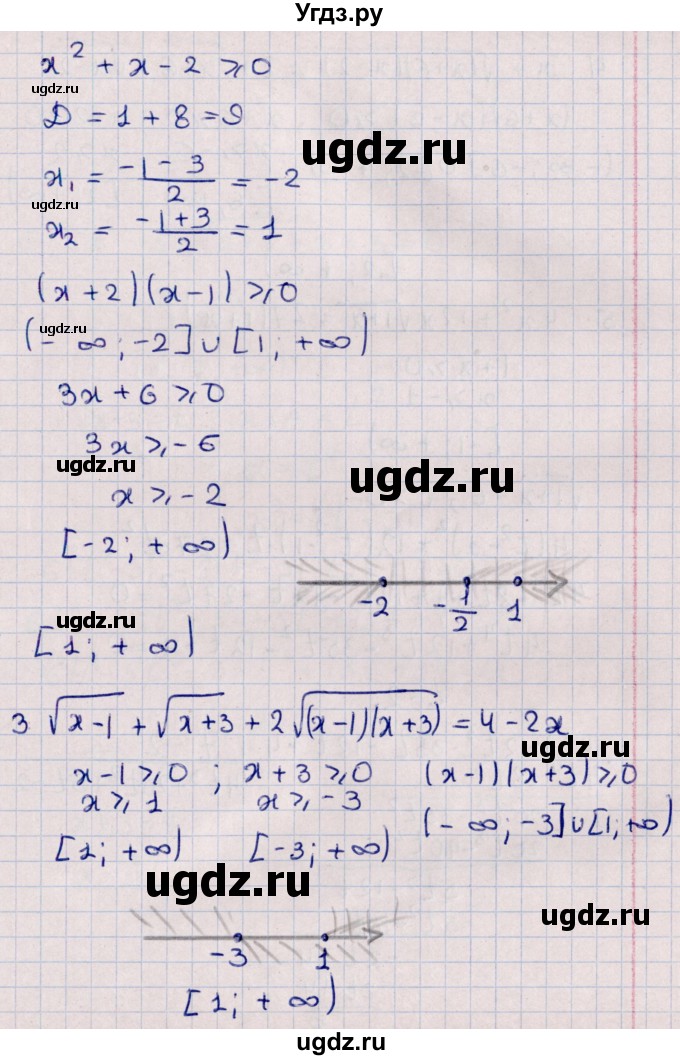 Угдз.ру
x² + x - 2 ⩾ 0
ugdz.ru
Д = 1 + 8 = 9
ugdz.ru
x₁ = (-1 - 3)/2 = -2
ugdz.ru
x₂ = (-1 + 3)/2 = 1
(x + 2)(x - 1) ⩾ 0
ugdz.ru
(-∞; -2] ∪ [1; +∞)
3x + 6 ⩾ 0
3x ⩾ -6
ugdz.ru
ugdz.ru
x ⩾ -2
[-2; +∞)
-2 -1/2 1
ugdz.ru
[1; +∞)
3 √(x-1) + √(x+3) + 2√((x-1)(x+3)) = 4 - 2x
ugdz.ru
x - 1 ⩾ 0 ; x + 3 ⩾ 0 (x-1)(x+3) ⩾ 0
x ⩾ 1 x ⩾ -3
(-∞; -3] ∪ [1; +∞)
[1; +∞) [-3; +∞)
ugdz.ru
ugdz.ru
-3 1
[1; +∞)
ugdz.ru
ugdz.ru